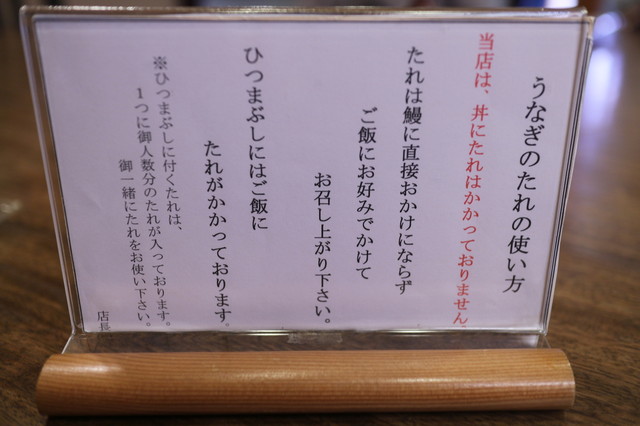 うなぎのたれの使い方
当店は、丼にたれはかかっておりません。
たれは鰻に直接おかけにならず
ご飯にお好みでかけて
お召し上がり下さい。
ひつまぶしにはご飯に
たれがかかっております。
※ひつまぶしに付くたれは、
1つに御人数分のたれが入っております。
御一緒にたれをお使い下さい。
店長